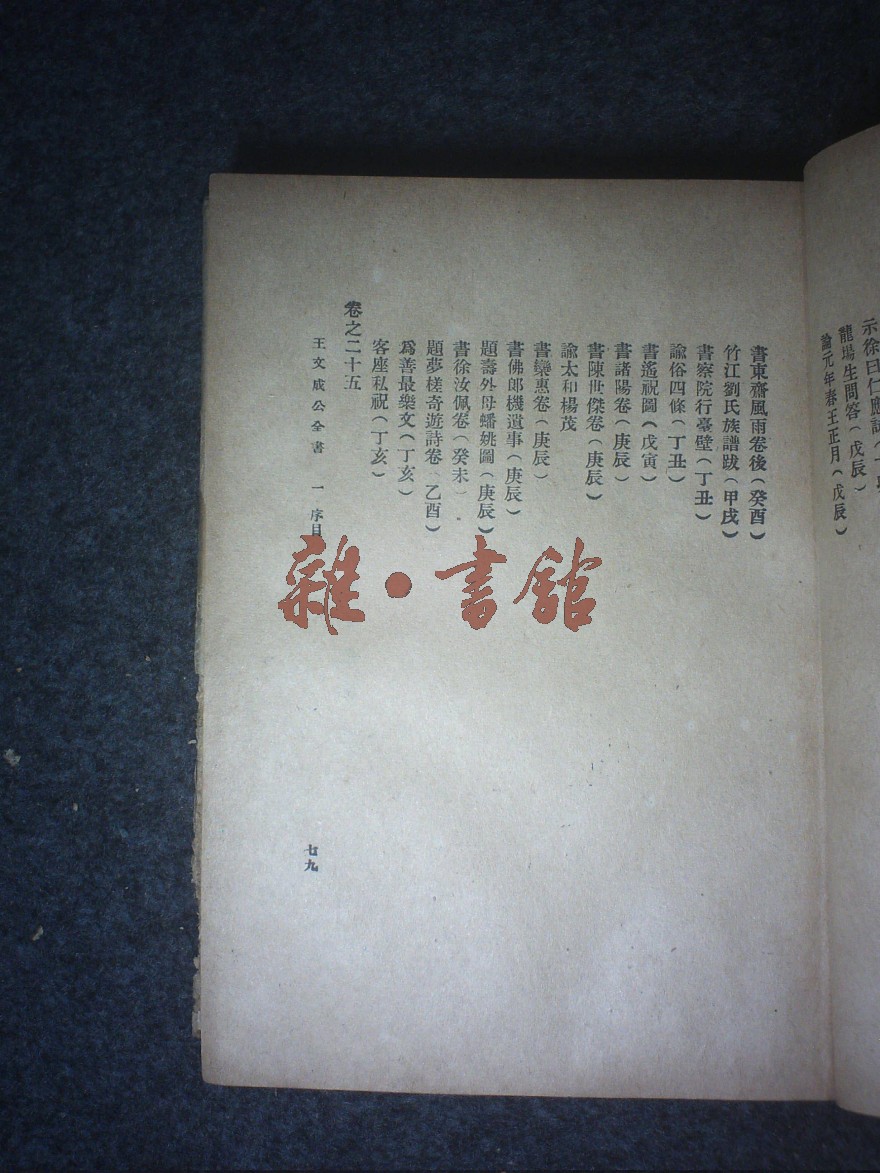 龍場生問答(戊辰)
論元年春王正月(戊辰)
書東齋風雨卷後(癸酉)
竹江劉氏族譜跋(甲戌)
書察院行臺壁(丁丑)
諭俗四條(丁丑)
書遙祝圖(戊寅)
書諸陽卷(庚辰)
書陳世傑卷(庚辰)
諭太和楊茂
書欒惠卷(庚辰)
書佛郎機遺事(庚辰)
題壽外母蟠桃圖(庚辰)
書徐汝佩卷(癸未)
題夢槎奇遊詩卷(乙酉)
爲善最樂文(丁亥)
客座私祝(丁亥)
卷之二十五
王文成公全書 一 序目
七九
雜·書館